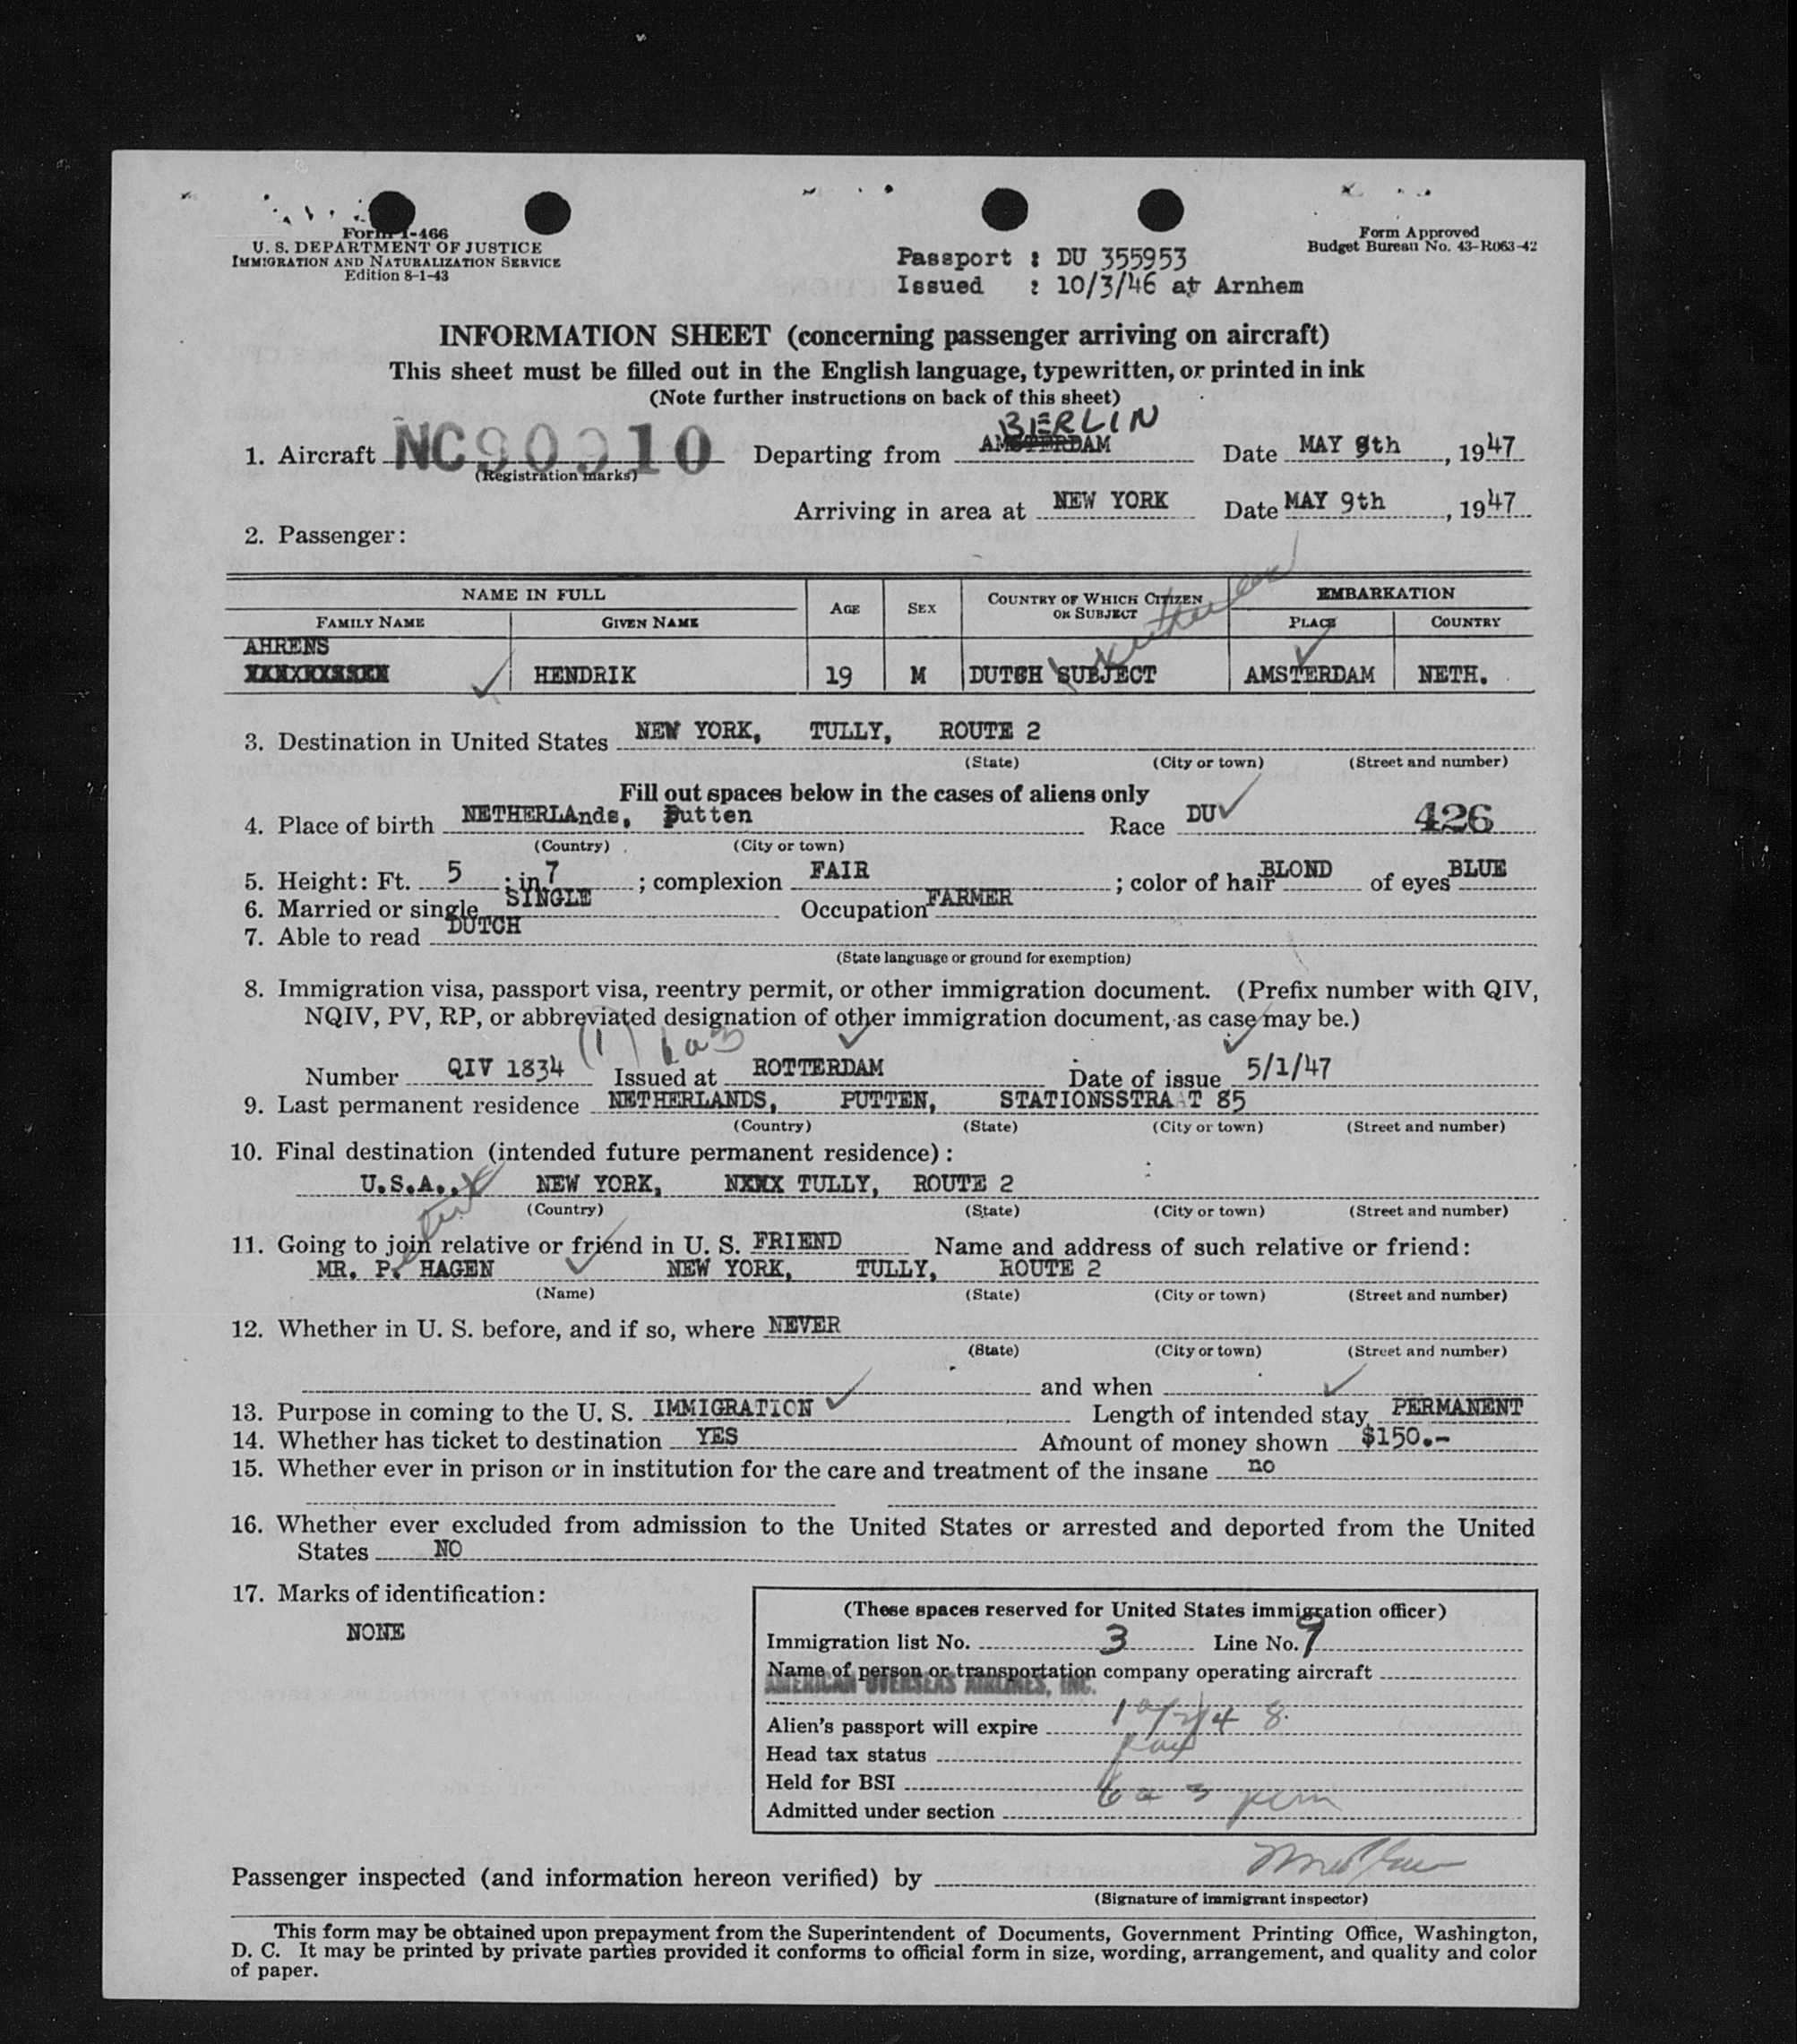 Form I-466
U. S. DEPARTMENT OF JUSTICE
IMMIGRATION AND NATURALIZATION SERVICE
Edition 8-1-43
Form Approved
Budget Bureau No. 43-R063-42
Passport : DU 355953
Issued : 10/3/46 at Arnhem
INFORMATION SHEET (concerning passenger arriving on aircraft)
This sheet must be filled out in the English language, typewritten, or printed in ink
(Note further instructions on back of this sheet)
BERLIN
1. Aircraft NC90910 Departing from AMSTERDAM Date MAY 8th, 1947
(Registration marks)
Arriving in area at NEW YORK Date MAY 9th, 1947
2. Passenger:
NAME IN FULL AGE SEX COUNTRY OF WHICH CITIZEN OR SUBJECT EMBARKATION
FAMILY NAME GIVEN NAME PLACE COUNTRY
AHRENS
HENDRIK 19 M DUTCH SUBJECT AMSTERDAM NETH.
3. Destination in United States NEW YORK, TULLY, ROUTE 2
(State) (City or town) (Street and number)
Fill out spaces below in the cases of aliens only
4. Place of birth NETHERLAnds, Putten Race DU 426
(Country) (City or town)
5. Height: Ft. 5 ; in 7 ; complexion FAIR ; color of hair BLOND of eyes BLUE
6. Married or single SINGLE Occupation FARMER
7. Able to read DUTCH
(State language or ground for exemption)
8. Immigration visa, passport visa, reentry permit, or other immigration document. (Prefix number with QIV,
NQIV, PV, RP, or abbreviated designation of other immigration document, as case may be.)
(1) 6a3
Number QIV 1834 Issued at ROTTERDAM Date of issue 5/1/47
9. Last permanent residence NETHERLANDS, PUTTEN, STATIONSSTRAAT 85
(Country) (State) (City or town) (Street and number)
10. Final destination (intended future permanent residence):
U.S.A., NEW YORK, NXXX TULLY, ROUTE 2
(Country) (State) (City or town) (Street and number)
11. Going to join relative or friend in U. S. FRIEND Name and address of such relative or friend:
MR. P. HAGEN NEW YORK, TULLY, ROUTE 2
(Name) (State) (City or town) (Street and number)
12. Whether in U. S. before, and if so, where NEVER
(State) (City or town) (Street and number)
and when
13. Purpose in coming to the U. S. IMMIGRATION Length of intended stay PERMANENT
14. Whether has ticket to destination YES Amount of money shown $150.-
15. Whether ever in prison or in institution for the care and treatment of the insane no
16. Whether ever excluded from admission to the United States or arrested and deported from the United
States NO
17. Marks of identification:
NONE
(These spaces reserved for United States immigration officer)
Immigration list No. 3 Line No. 9
Name of person or transportation company operating aircraft
AMERICAN OVERSEAS AIRLINES, INC.
Alien's passport will expire 10/2/48
Head tax status
Held for BSI
Admitted under section 6a3 perm
Passenger inspected (and information hereon verified) by
(Signature of immigrant inspector)
This form may be obtained upon prepayment from the Superintendent of Documents, Government Printing Office, Washington,
D. C. It may be printed by private parties provided it conforms to official form in size, wording, arrangement, and quality and color
of paper.